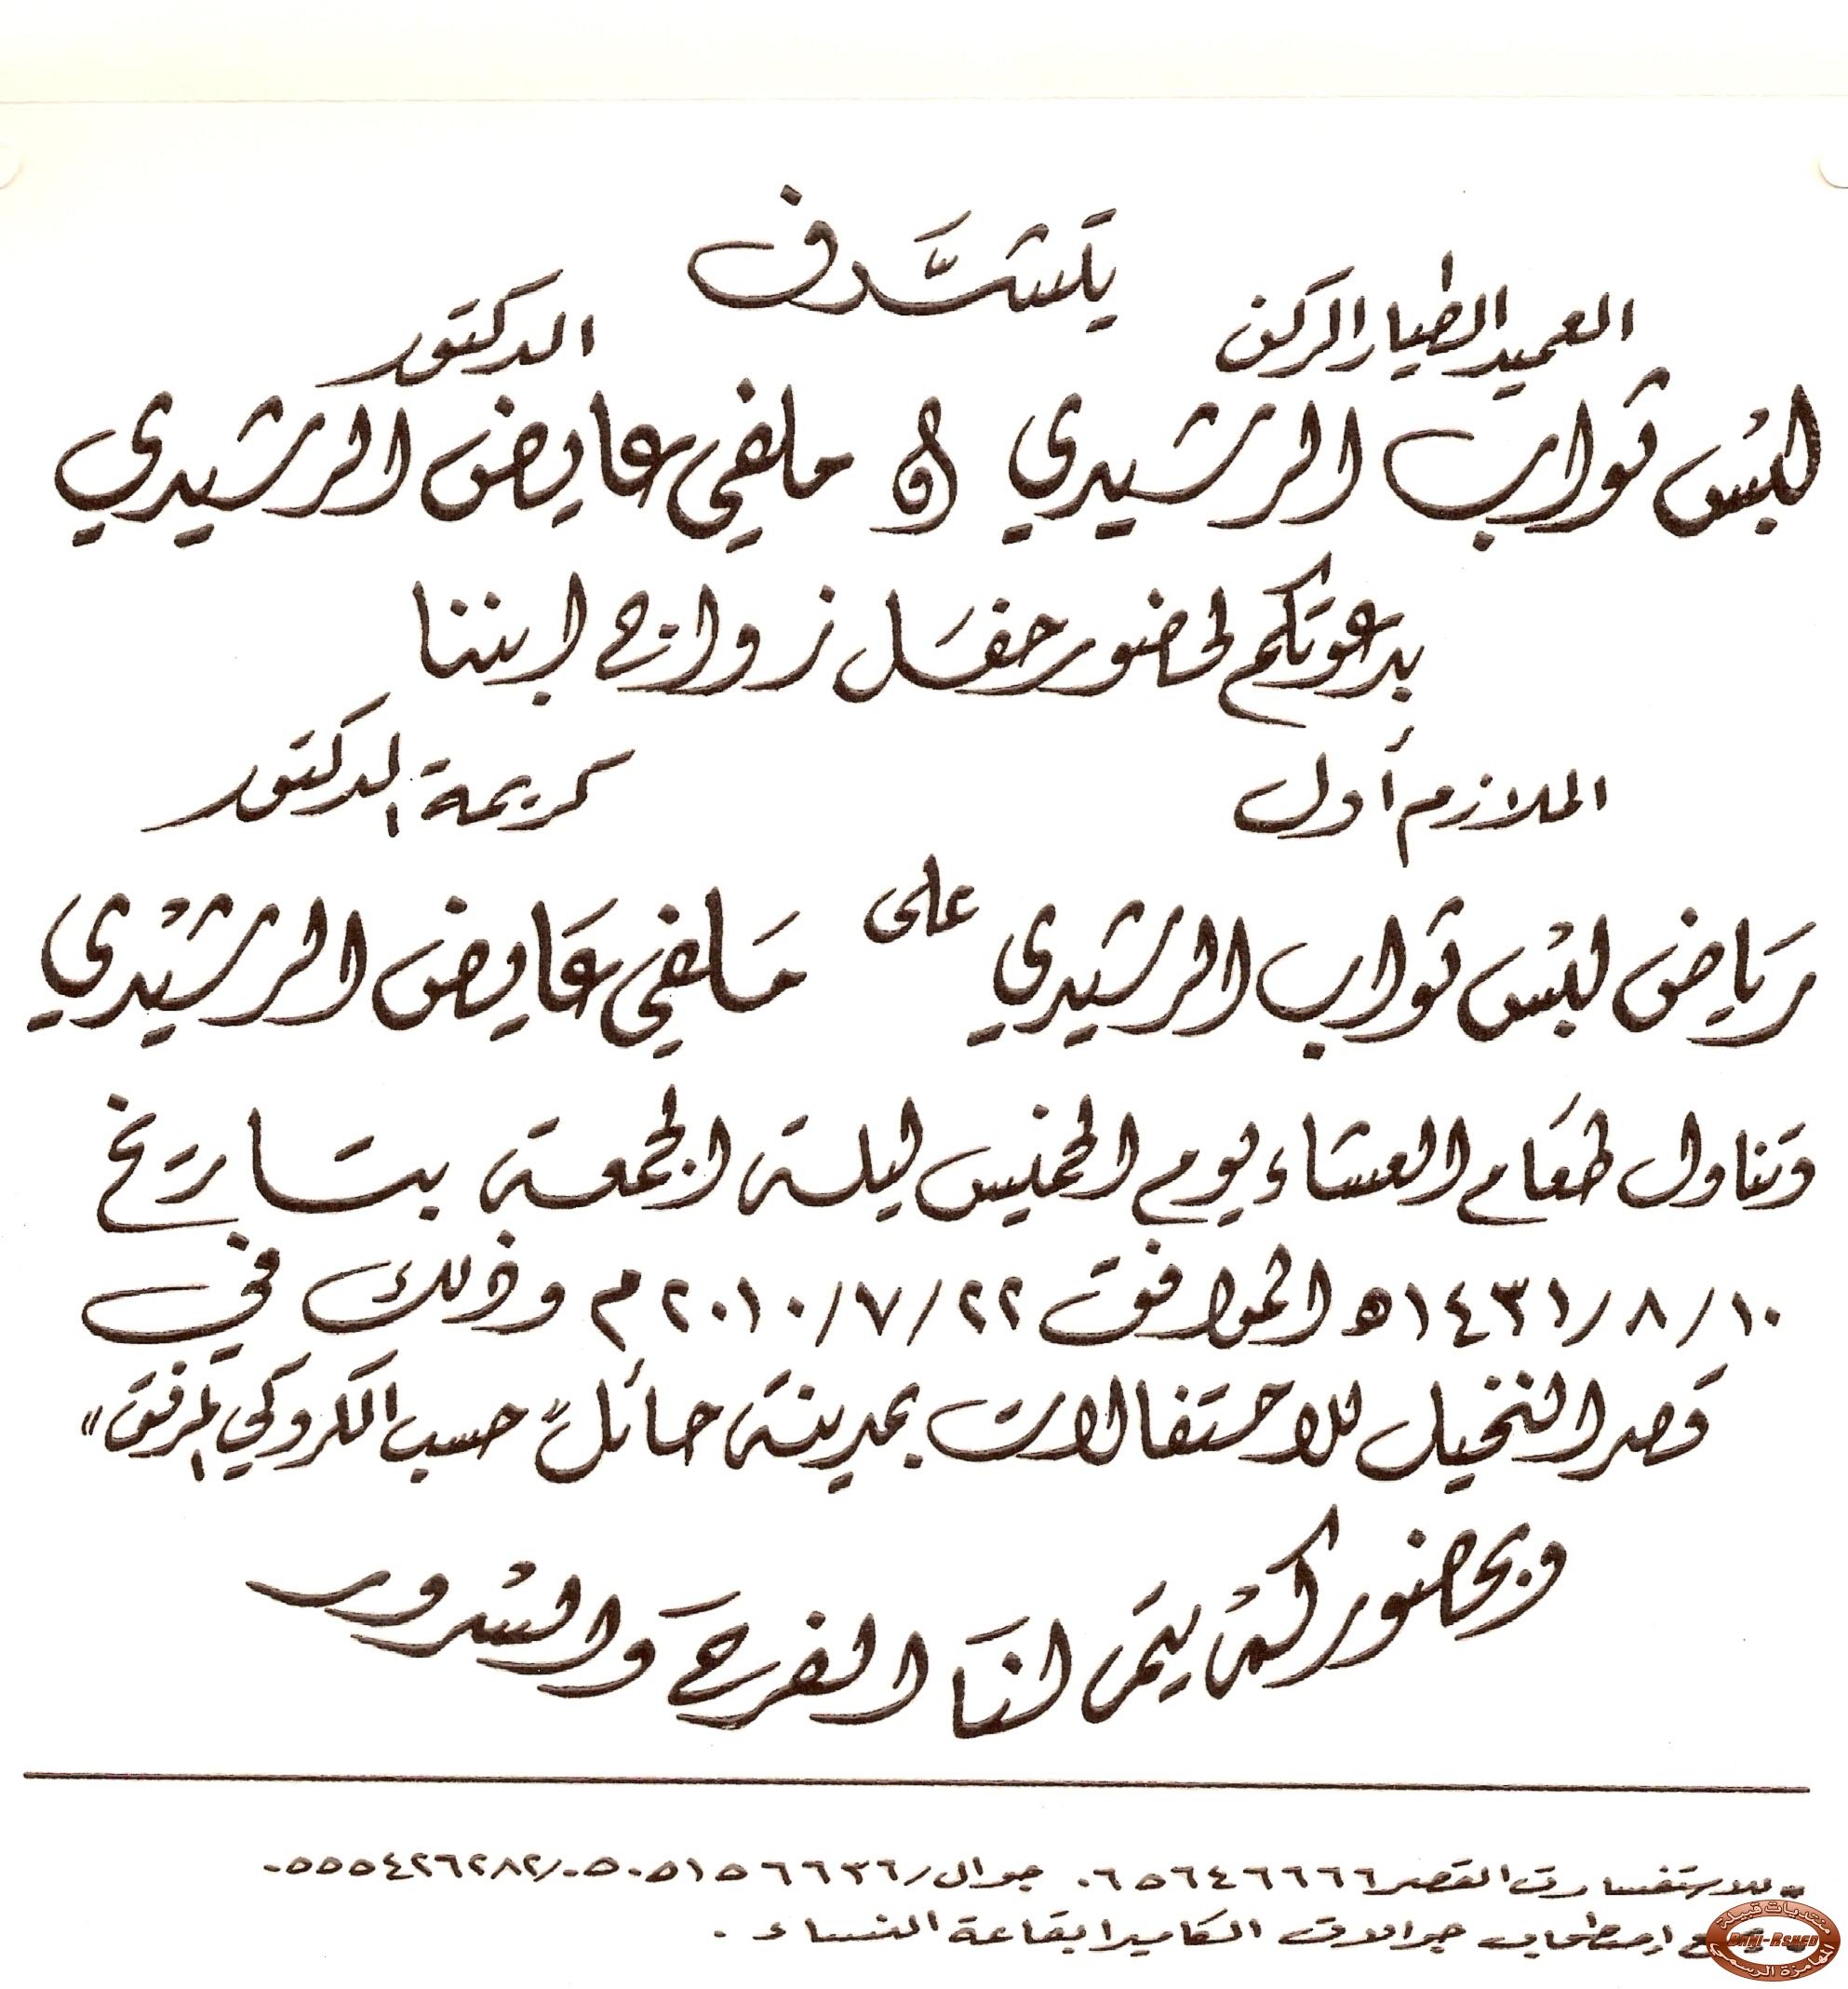 يتشرف
العميد الطيار الركن الدكتور
لبس ثواب الرشيدي & ملفي عايض الرشيدي
بدعوتكم لحضور حفل زواج ابننا
الملازم أول كريمة الدكتور
رياض لبس ثواب الرشيدي على ملفي عايض الرشيدي
وتناول طعام العشاء يوم الخميس ليلة الجمعة بتاريخ
١٠/٨/١٤٣١ه الموافق ٢٢/٧/٢٠١٠م وذلك في
قصر النخيل للاحتفالات بمدينة حائل "حسب الكروكي المرفق"
وبحضوركم يتم لنا الفرح والسرور
للاستفسار ت القصر ٠٦٥٦٤٦٦٦٦ جوال/٠٥٠٥١٥٦٦٣٦/٠٥٥٥٤٢٦٢٨٢
اصطحاب جوالات الكاميرا بقاعة النساء .
منتديات قبيلة
BANI-RSHED
المهامزة الرسمي